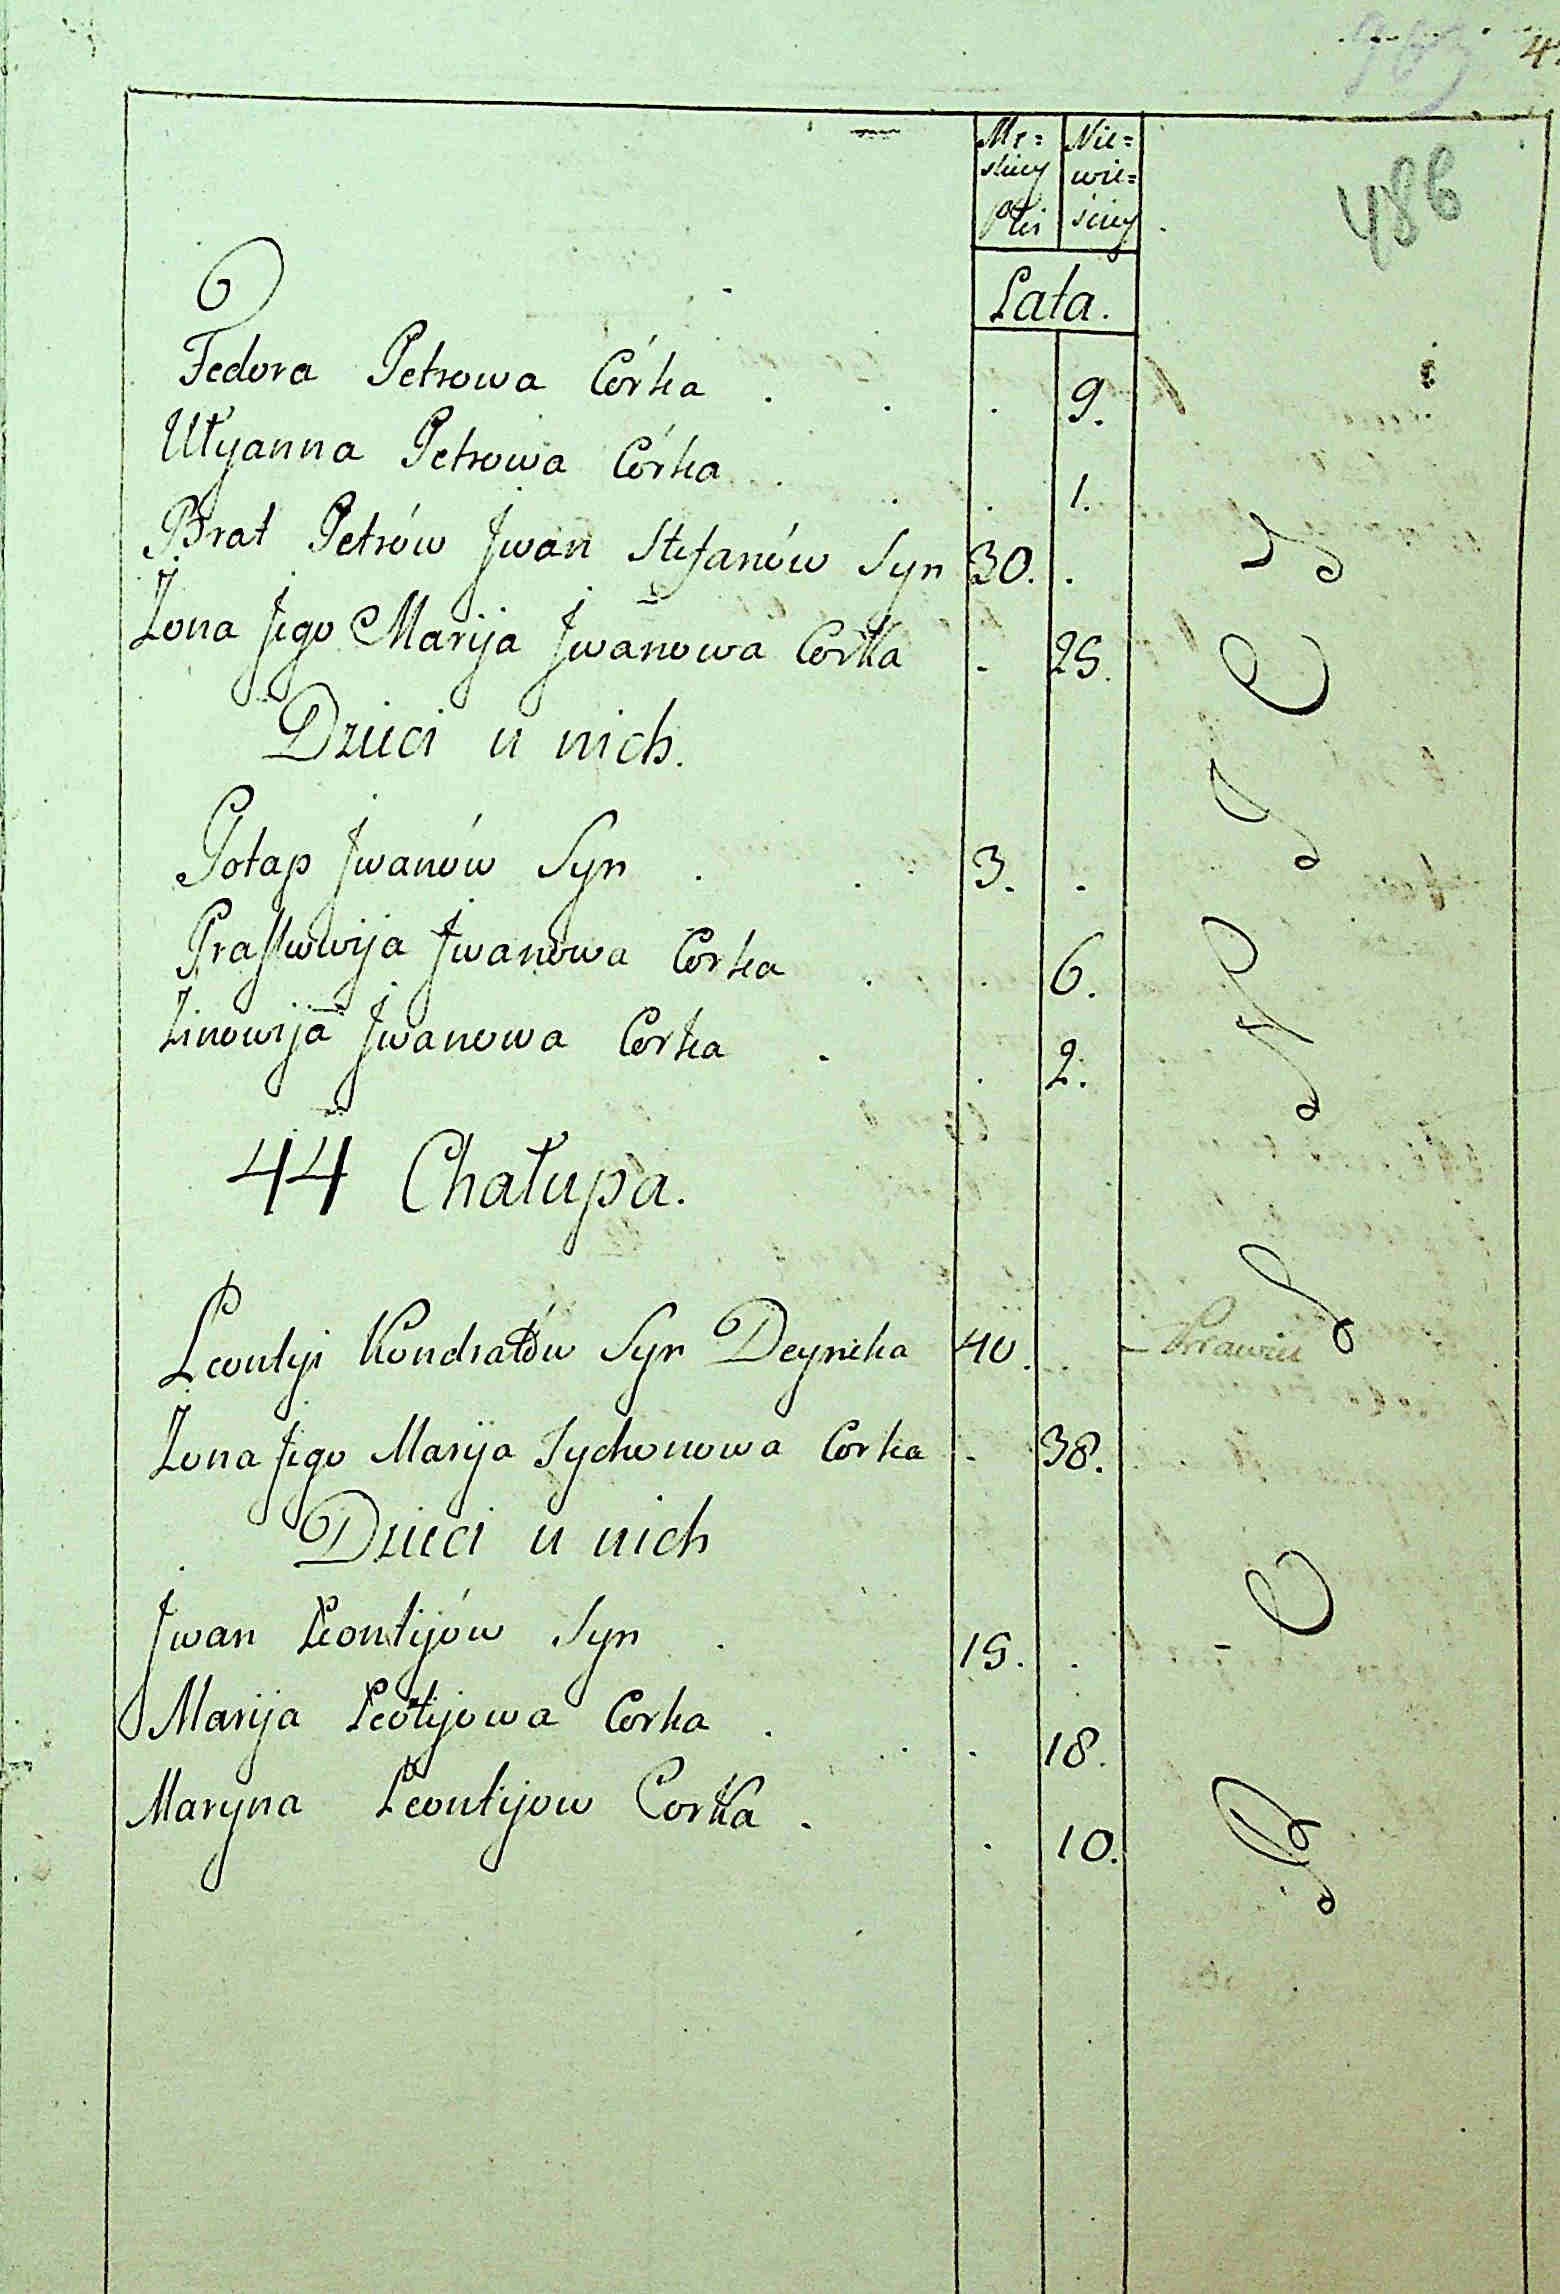 486
Mę= Nie=
skiey wie=
Płci sciey
Lata.
Fedora Petrowa Córka . . . 9.
Ułyanna Petrowa Córka . . . 1.
Brat Petrów Jwan Stefanów Syn 30. .
Żona Jego Marija Jwanowa Corka . 25.
Dzieci u nich.
Potap Jwanów Syn . . 3. .
Praskowija Jwanowa Corka . . 6.
Zinowija Jwanowa Corka . . 2.
44 Chałupa.
Leontyi Kondratów Syn Deyneka 40. .
Żona Jego Marija Tychonowa Corka . 38.
Dzieci u nich
Jwan Leontijów Syn . 15. .
Marija Leotijowa Corka . . 18.
Maryna Leontijow Corka . . 10.